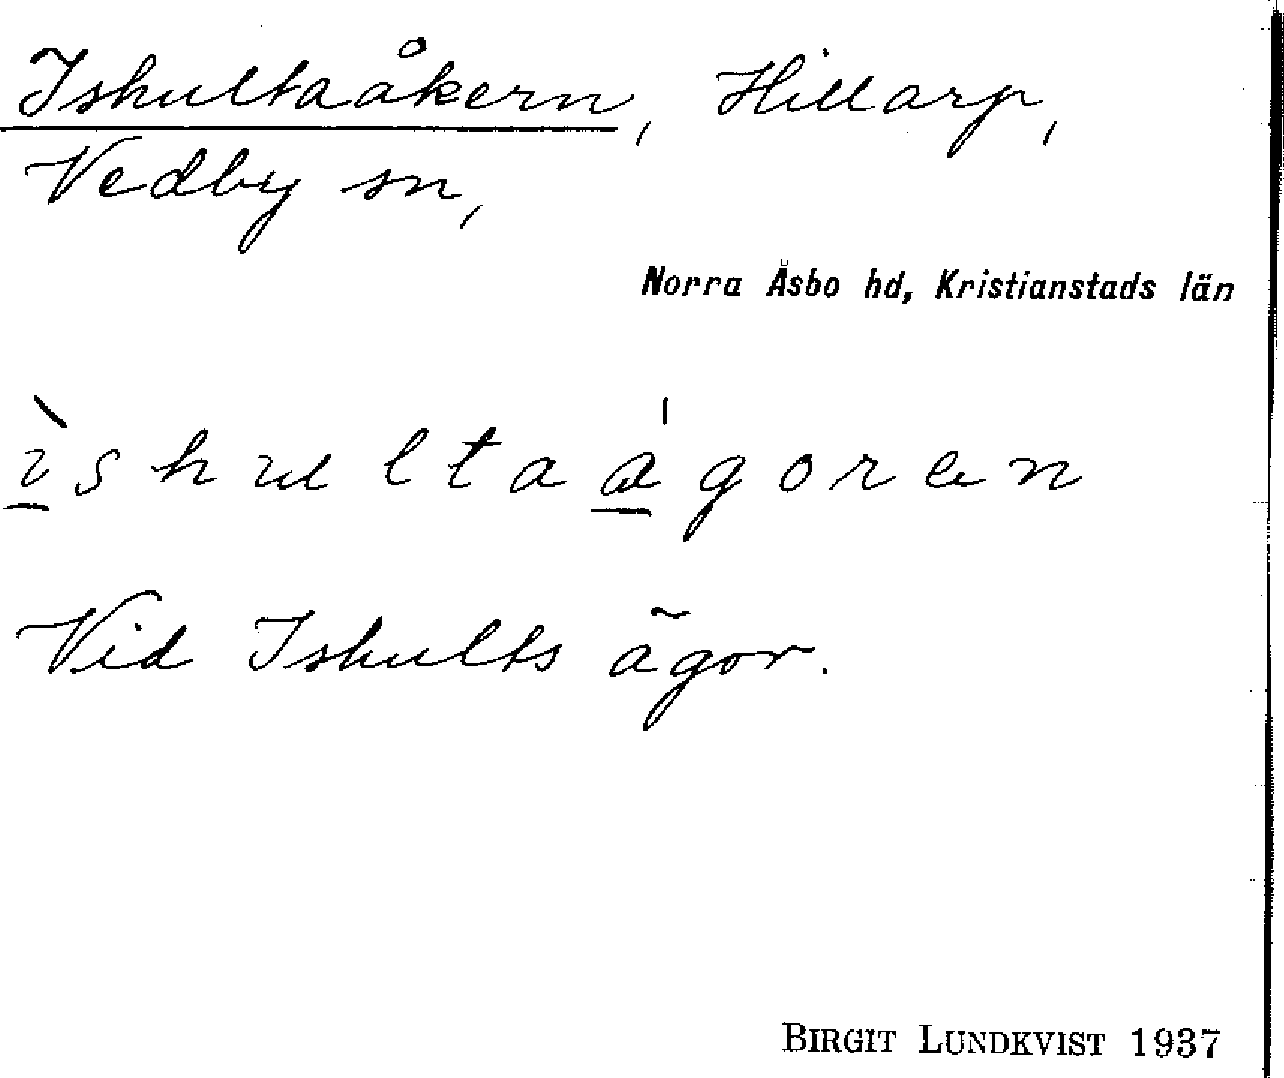 Ishultaåkern, Hillarp,
Vedby sn,
Norra Åsbo hd, Kristianstads län
ìshultaágoren
Vid Ishults ägor.
BIRGIT LUNDKVIST 1937